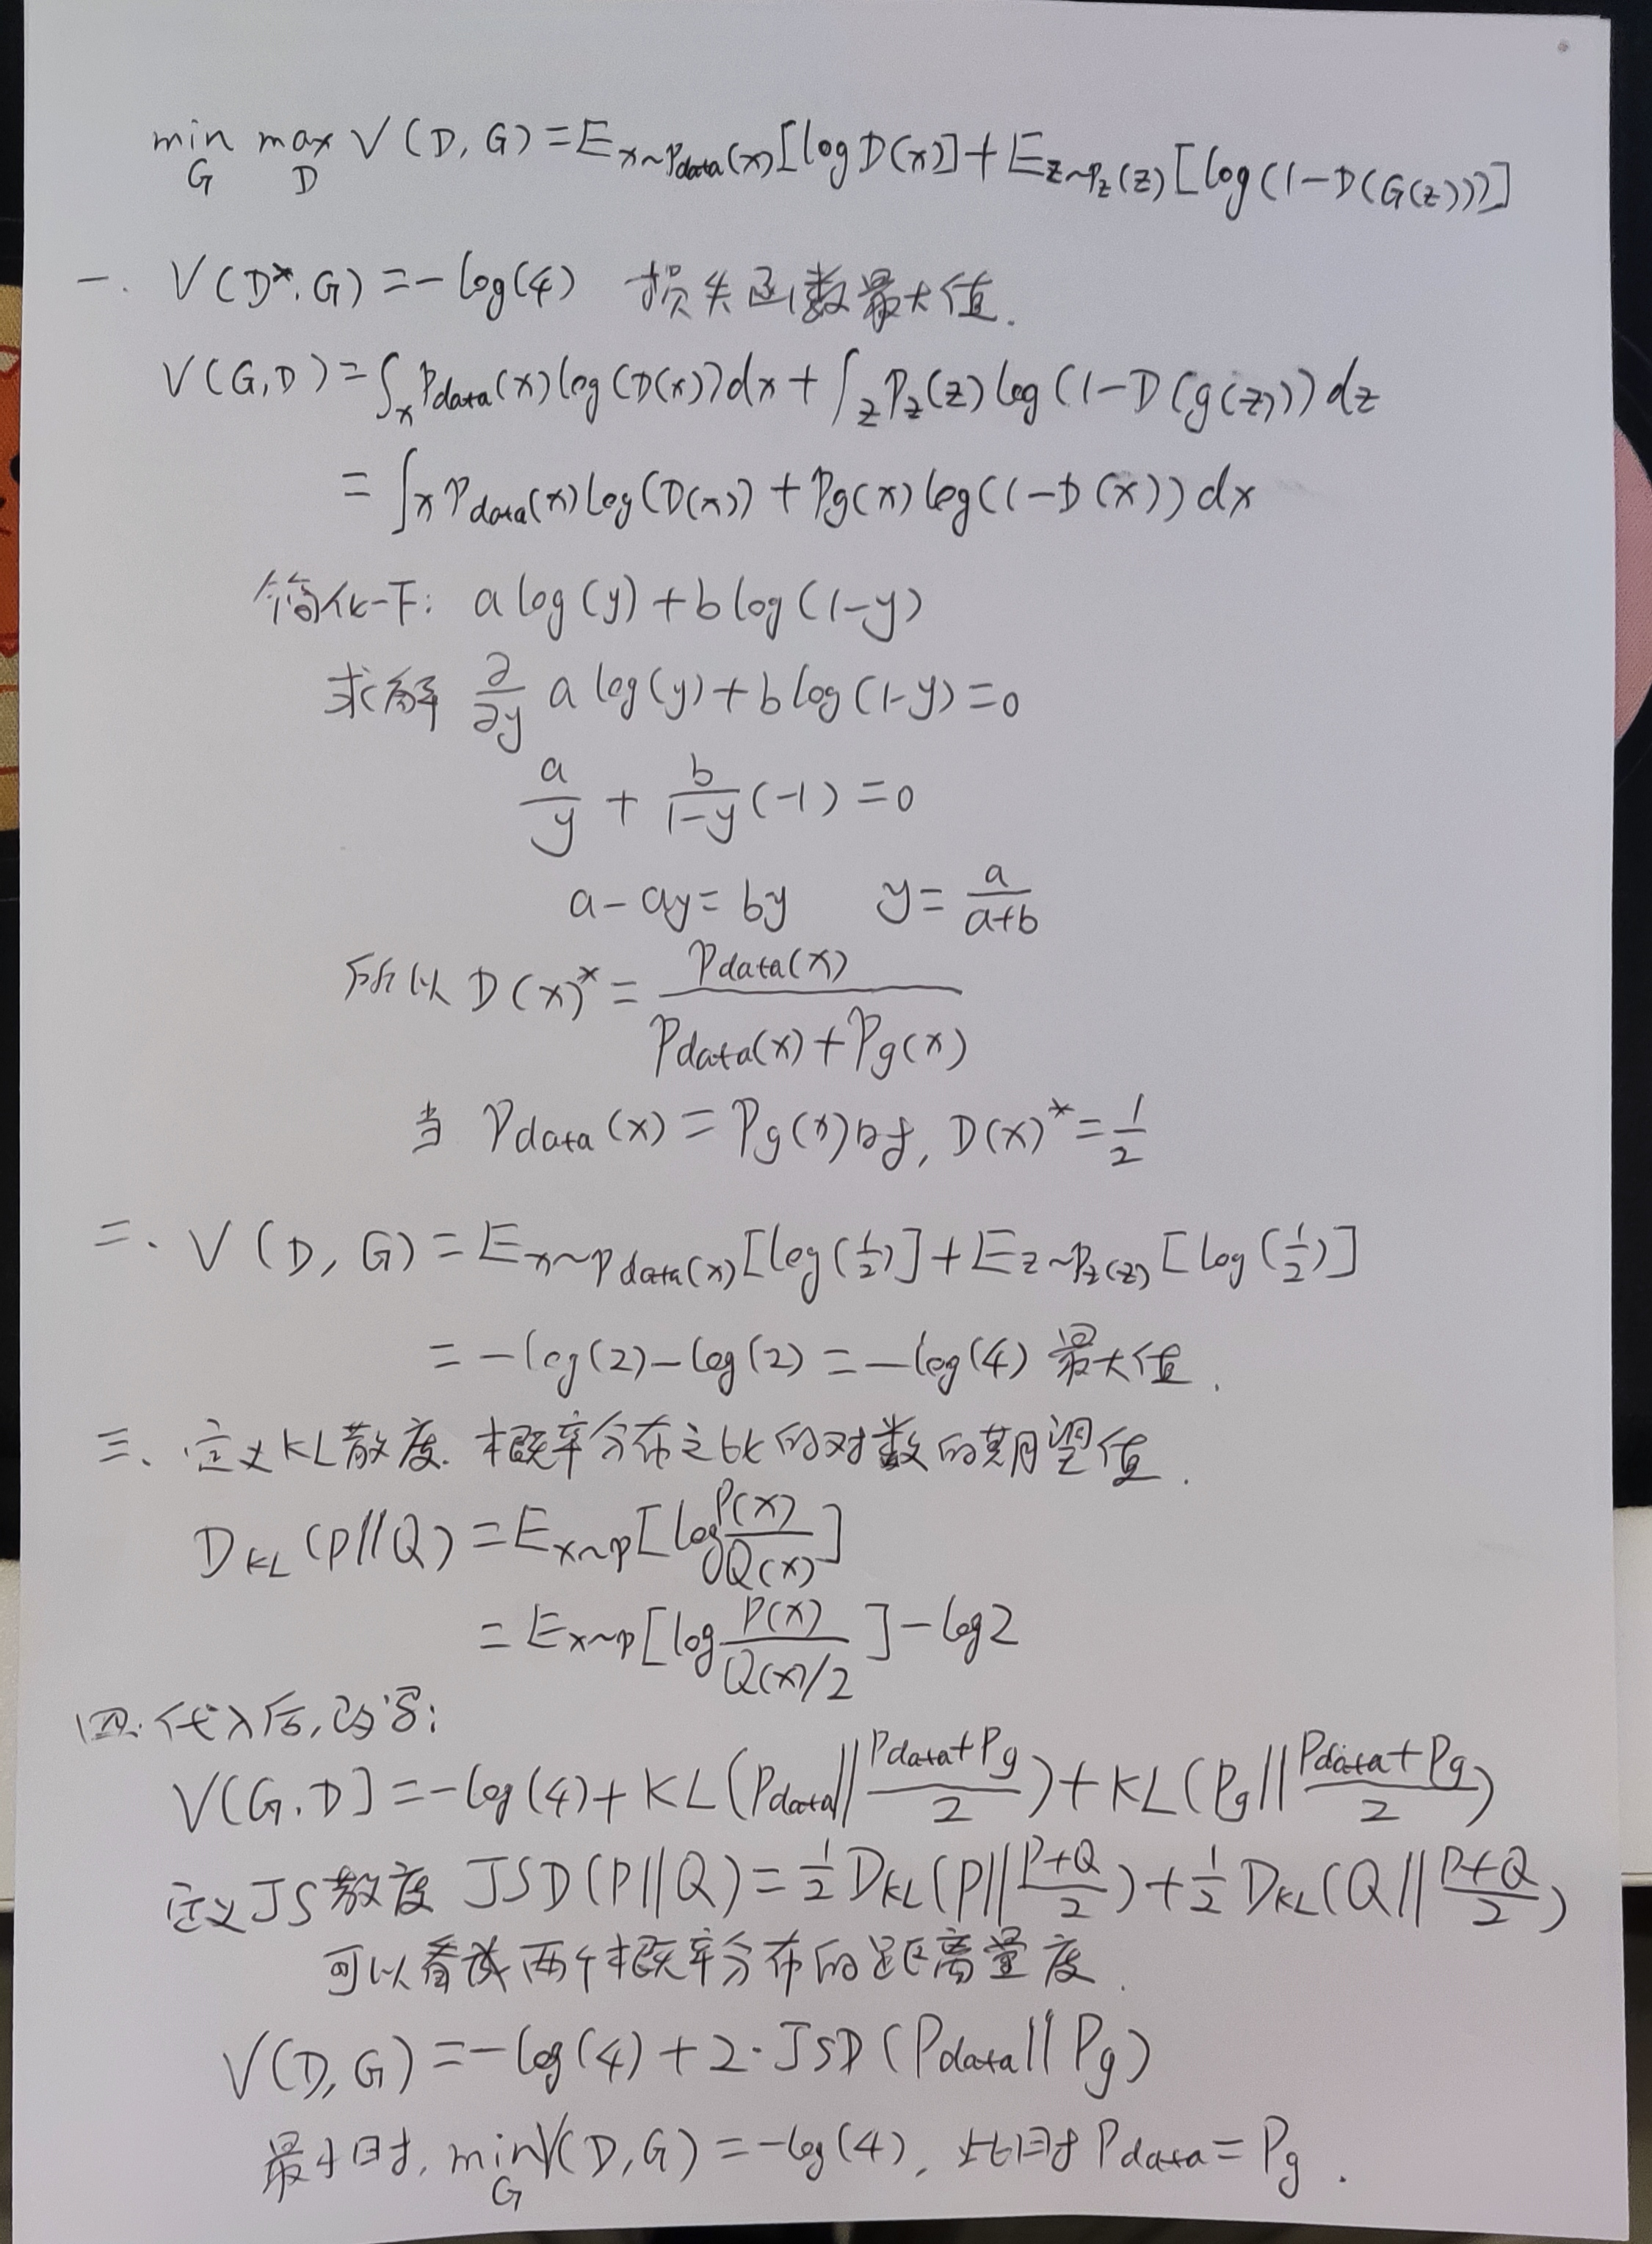 min max V(D,G)=E_{x~Pdata(x)}[log D(x)]+E_{z~Pz(z)}[log(1-D(G(z)))]
G D
一. V(D*.G)=-log(4) 损失函数最大值.
V(G,D)=∫_x Pdata(x)log(D(x))dx+∫_z Pz(z)log(1-D(g(z)))dz
=∫_x Pdata(x)log(D(x))+Pg(x)log(1-D(x))dx
简化一下: a log(y)+b log(1-y)
求解 ∂/∂y a log(y)+b log(1-y)=0
a/y + b/(1-y) (-1)=0
a-ay=by y=a/(a+b)
所以 D(x)*=Pdata(x)/(Pdata(x)+Pg(x))
当 Pdata(x)=Pg(x)时, D(x)*=1/2
二. V(D,G)=E_{x~Pdata(x)}[log(1/2)]+E_{z~Pz(z)}[log(1/2)]
=-log(2)-log(2)=-log(4) 最大值.
三. 定义KL散度. 概率分布之比的对数的期望值.
D_KL(P||Q)=E_{x~P}[log P(x)/Q(x)]
=E_{x~P}[log P(x)/(Q(x)/2)]-log2
四. 代入后,改写:
V(G.D]=-log(4)+KL(Pdata||(Pdata+Pg)/2)+KL(Pg||(Pdata+Pg)/2)
定义JS散度 JSD(P||Q)=1/2 D_KL(P||(P+Q)/2)+1/2 D_KL(Q||(P+Q)/2)
可以看成两个概率分布的距离量度.
V(D,G)=-log(4)+2·JSD(Pdata||Pg)
最小时, min_G V(D,G)=-log(4), 此时Pdata=Pg.